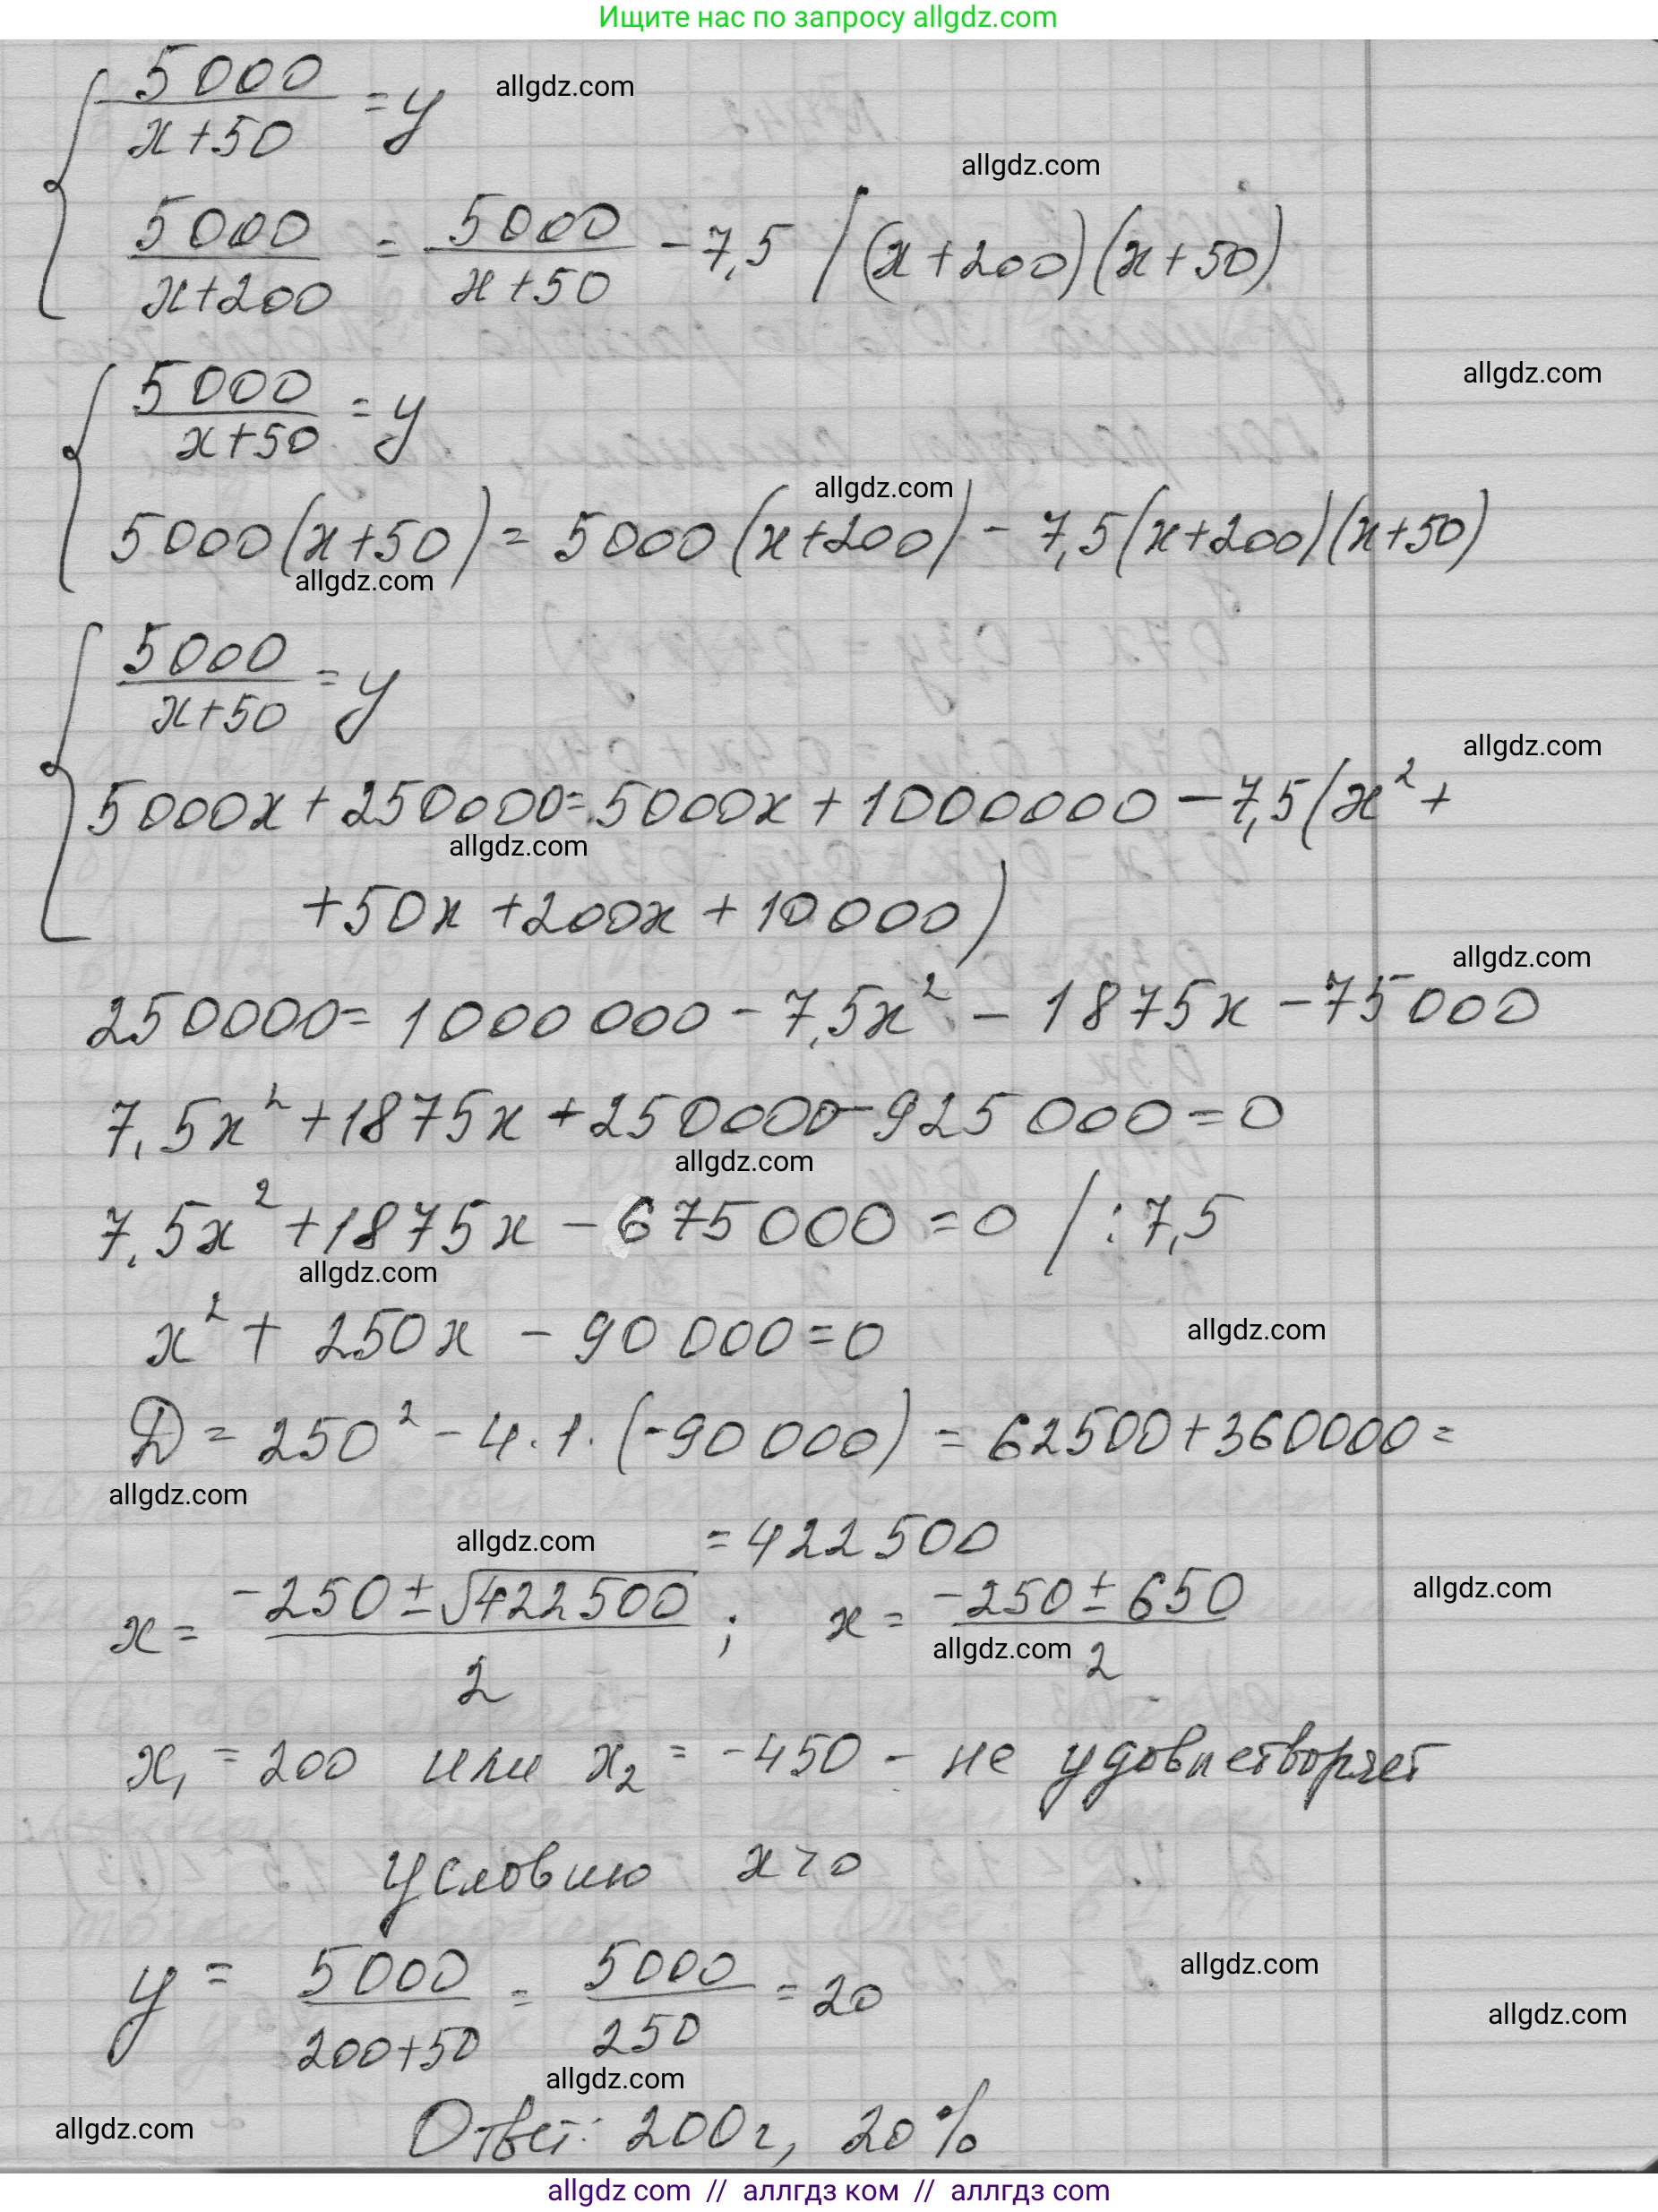 Ищите нас по запросу allgdz.com
5000/(x+50) = y
allgdz.com
allgdz.com
5000/(x+200) = 5000/(x+50) - 7,5 / (x+200)(x+50)
5000/(x+50) = y
allgdz.com
allgdz.com
5000(x+50) = 5000(x+200) - 7,5(x+200)(x+50)
allgdz.com
5000/(x+50) = y
allgdz.com
5000x + 250000 = 5000x + 1000000 - 7,5(x² +
allgdz.com
+ 50x + 200x + 10000)
allgdz.com
250000 = 1000000 - 7,5x² - 1875x - 75000
7,5x² + 1875x + 250000 - 925000 = 0
allgdz.com
7,5x² + 1875x - 675000 = 0 / : 7,5
allgdz.com
x² + 250x - 90000 = 0
allgdz.com
D = 250² - 4·1·(-90000) = 62500 + 360000 =
allgdz.com
allgdz.com
= 422500
x = (-250 ± √422500)/2 ; x = (-250 ± 650)/2
allgdz.com
allgdz.com
x₁ = 200 или x₂ = -450 - не удовлетворяет
условию x > 0
y = 5000/(200+50) = 5000/250 = 20
allgdz.com
allgdz.com
allgdz.com
Ответ: 200г, 20%
allgdz.com
allgdz com // аллгдз ком // аллгдз com